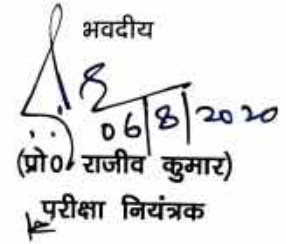 भवदीय
06/8/2020
(प्रो० राजीव कुमार)
परीक्षा नियंत्रक